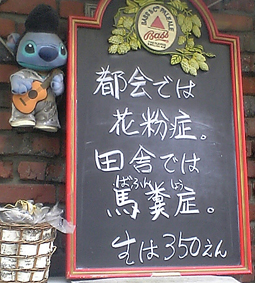 BASS & CO'S PALE ALE
Bass
都会では
花粉症。
田舎では
ばふん しょう
馬糞症。
生は350えん